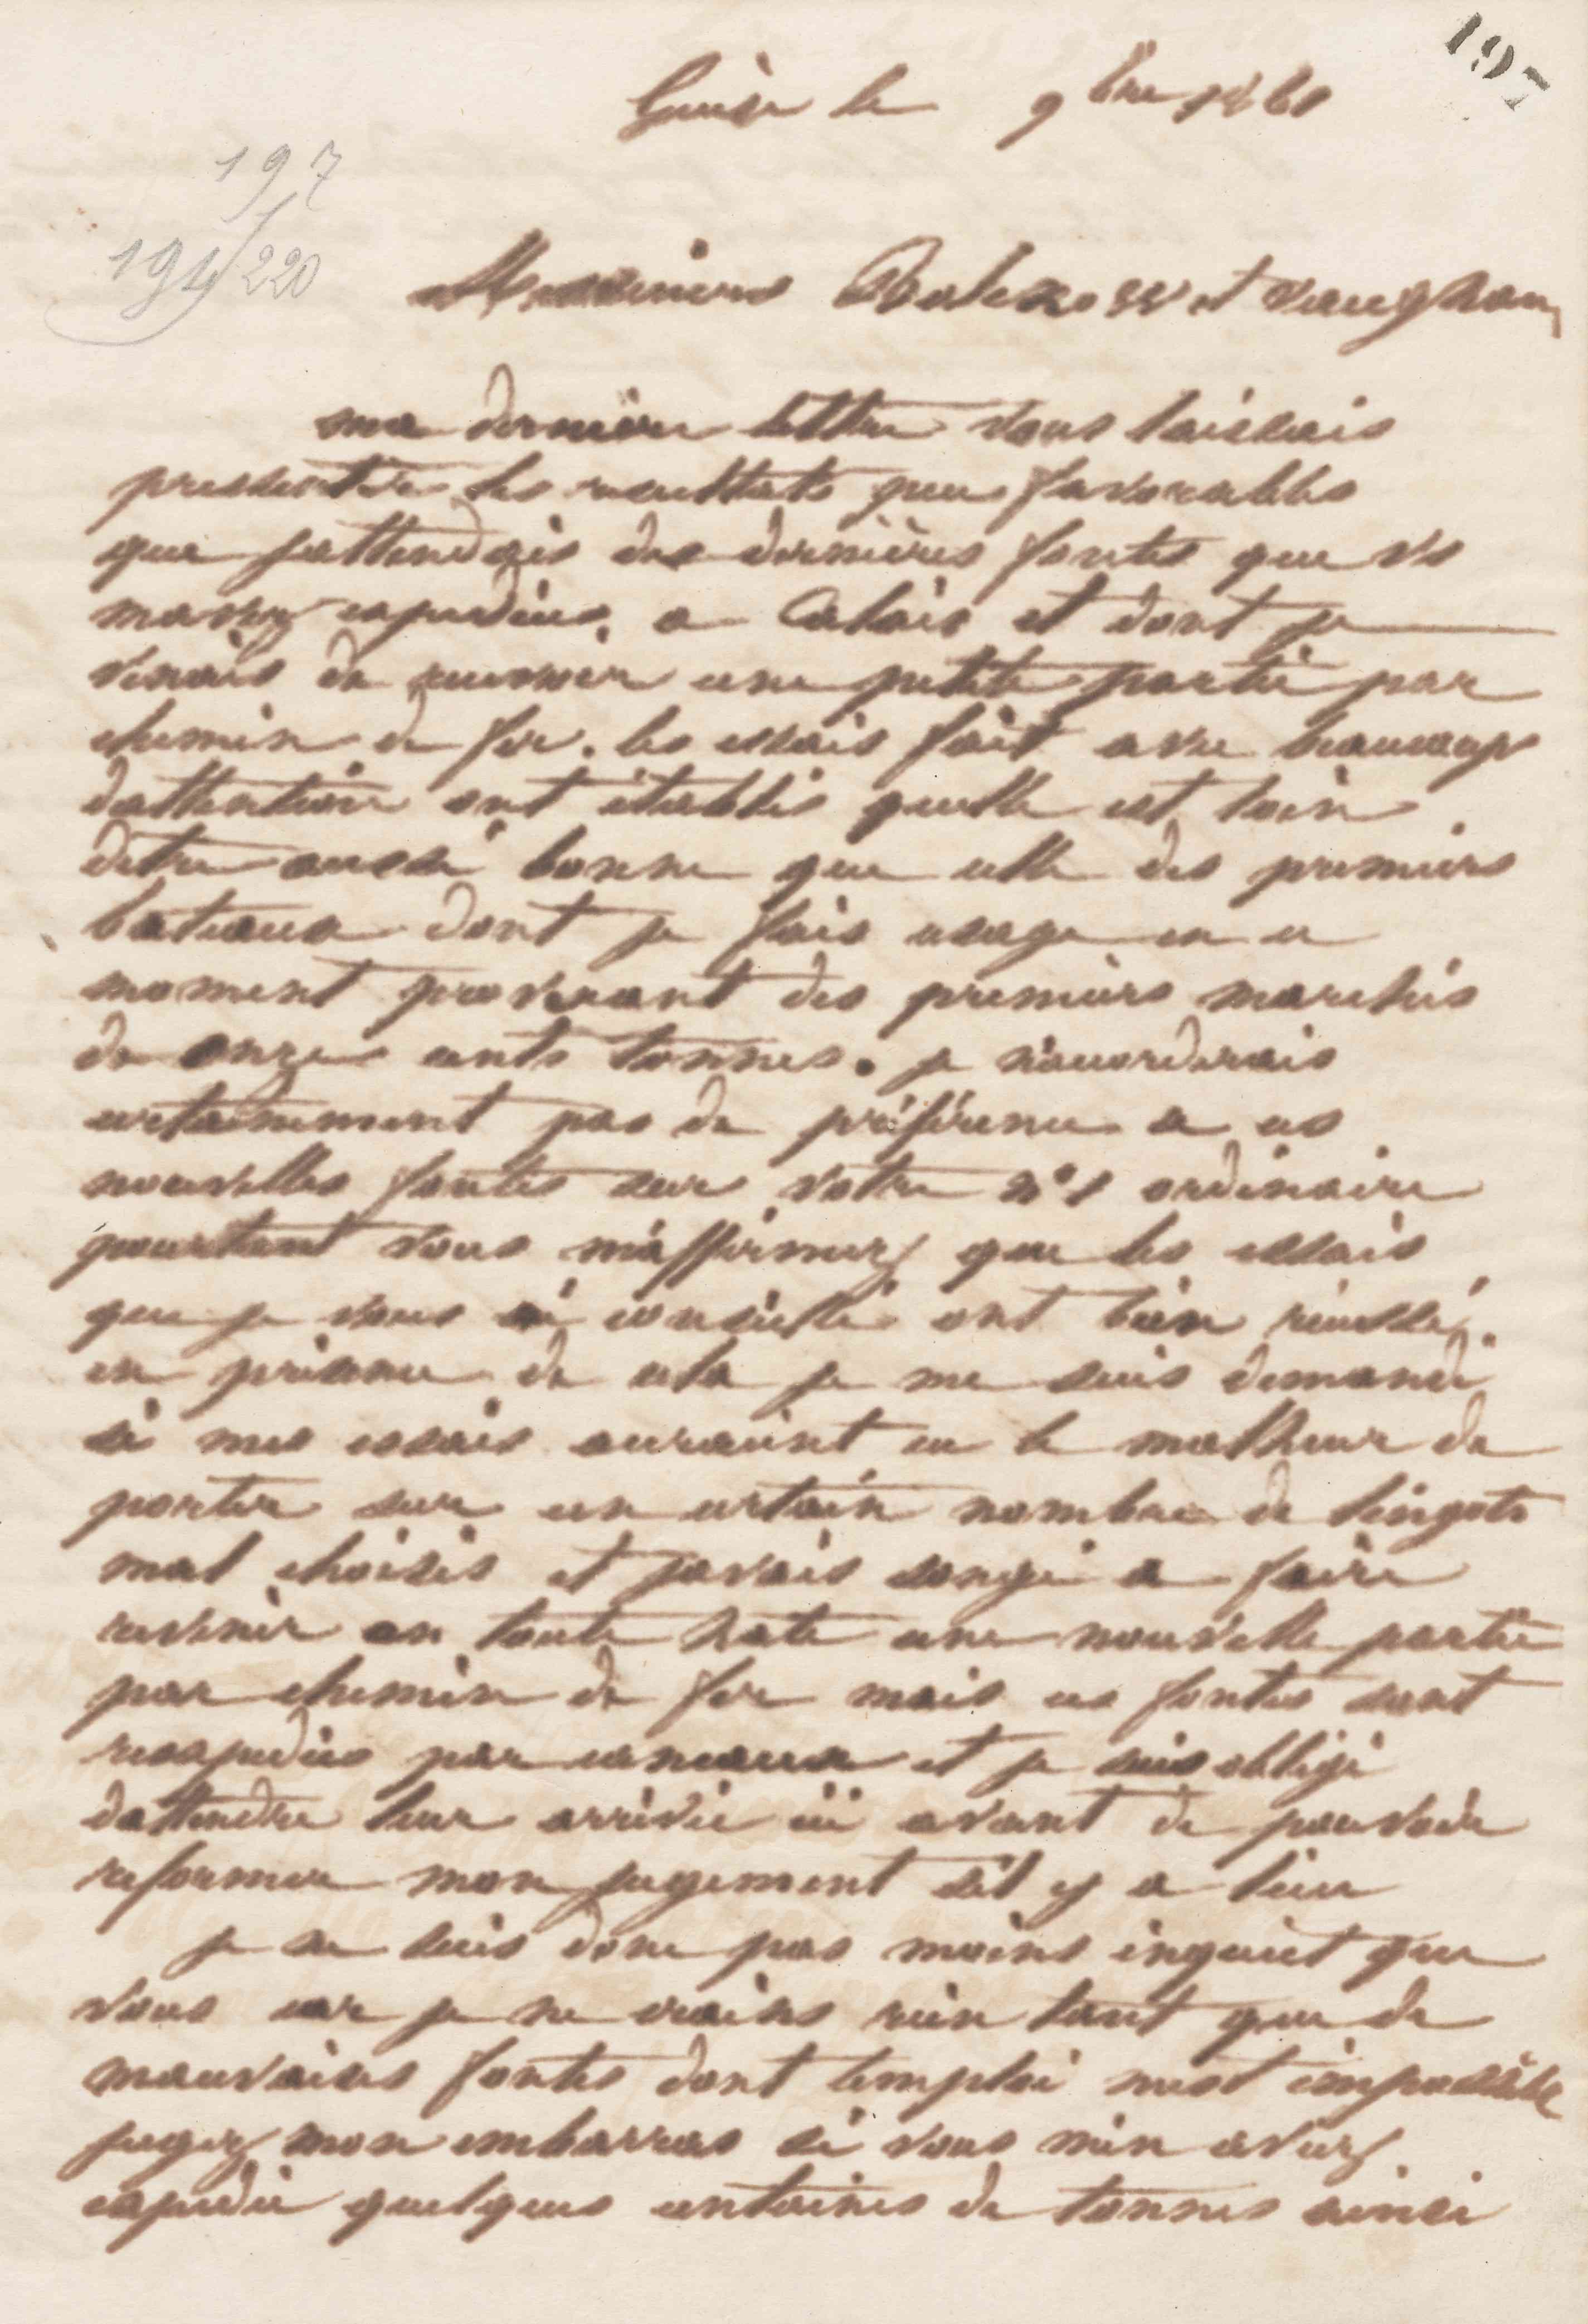 197
Guise le 9bre 1861
197
194/220
Messieurs Bolckow et Vaughan
ma dernière lettre vous laissais
pressentir les resultats peu favorables
que jattendais des dernières fontes que vs
mavez expediées a Calais et dont je
venais de recevoir une petite partie par
chemin de fer. les essais fait avec beaucoup
dattention ont établis quelle est loin
detre aussi bonne que celle des premiers
bateaux dont je fais usage en ce
moment provenant des premiers marchés
de onze cents tonnes. je n'accorderais
certainement pas de préférence a ces
nouvelles fontes sur votre n°1 ordinaire
pourtant vous m'affirmez que les essais
que je vous ai conseillé ont bien réussi.
en présence de cela je me suis demandé
si mes essais auraient eu le malheur de
porter sur un certain nombre de lingots
mal choisis et javais songé a faire
revenir en toute hate une nouvelle partie
par chemin de fer mais ces fontes sont
reexpediées par canaux et je suis obligé
dattendre leur arrivée ici avant de pouvoir
reformer mon jugement sil y a lieu
je ne suis donc pas moins inquiet que
vous car je ne crains rien tant que de
mauvaises fontes dont lemploi mest impossible
jugez mon embarras si vous men aviez
expedié quelques centaines de tonnes ainsi